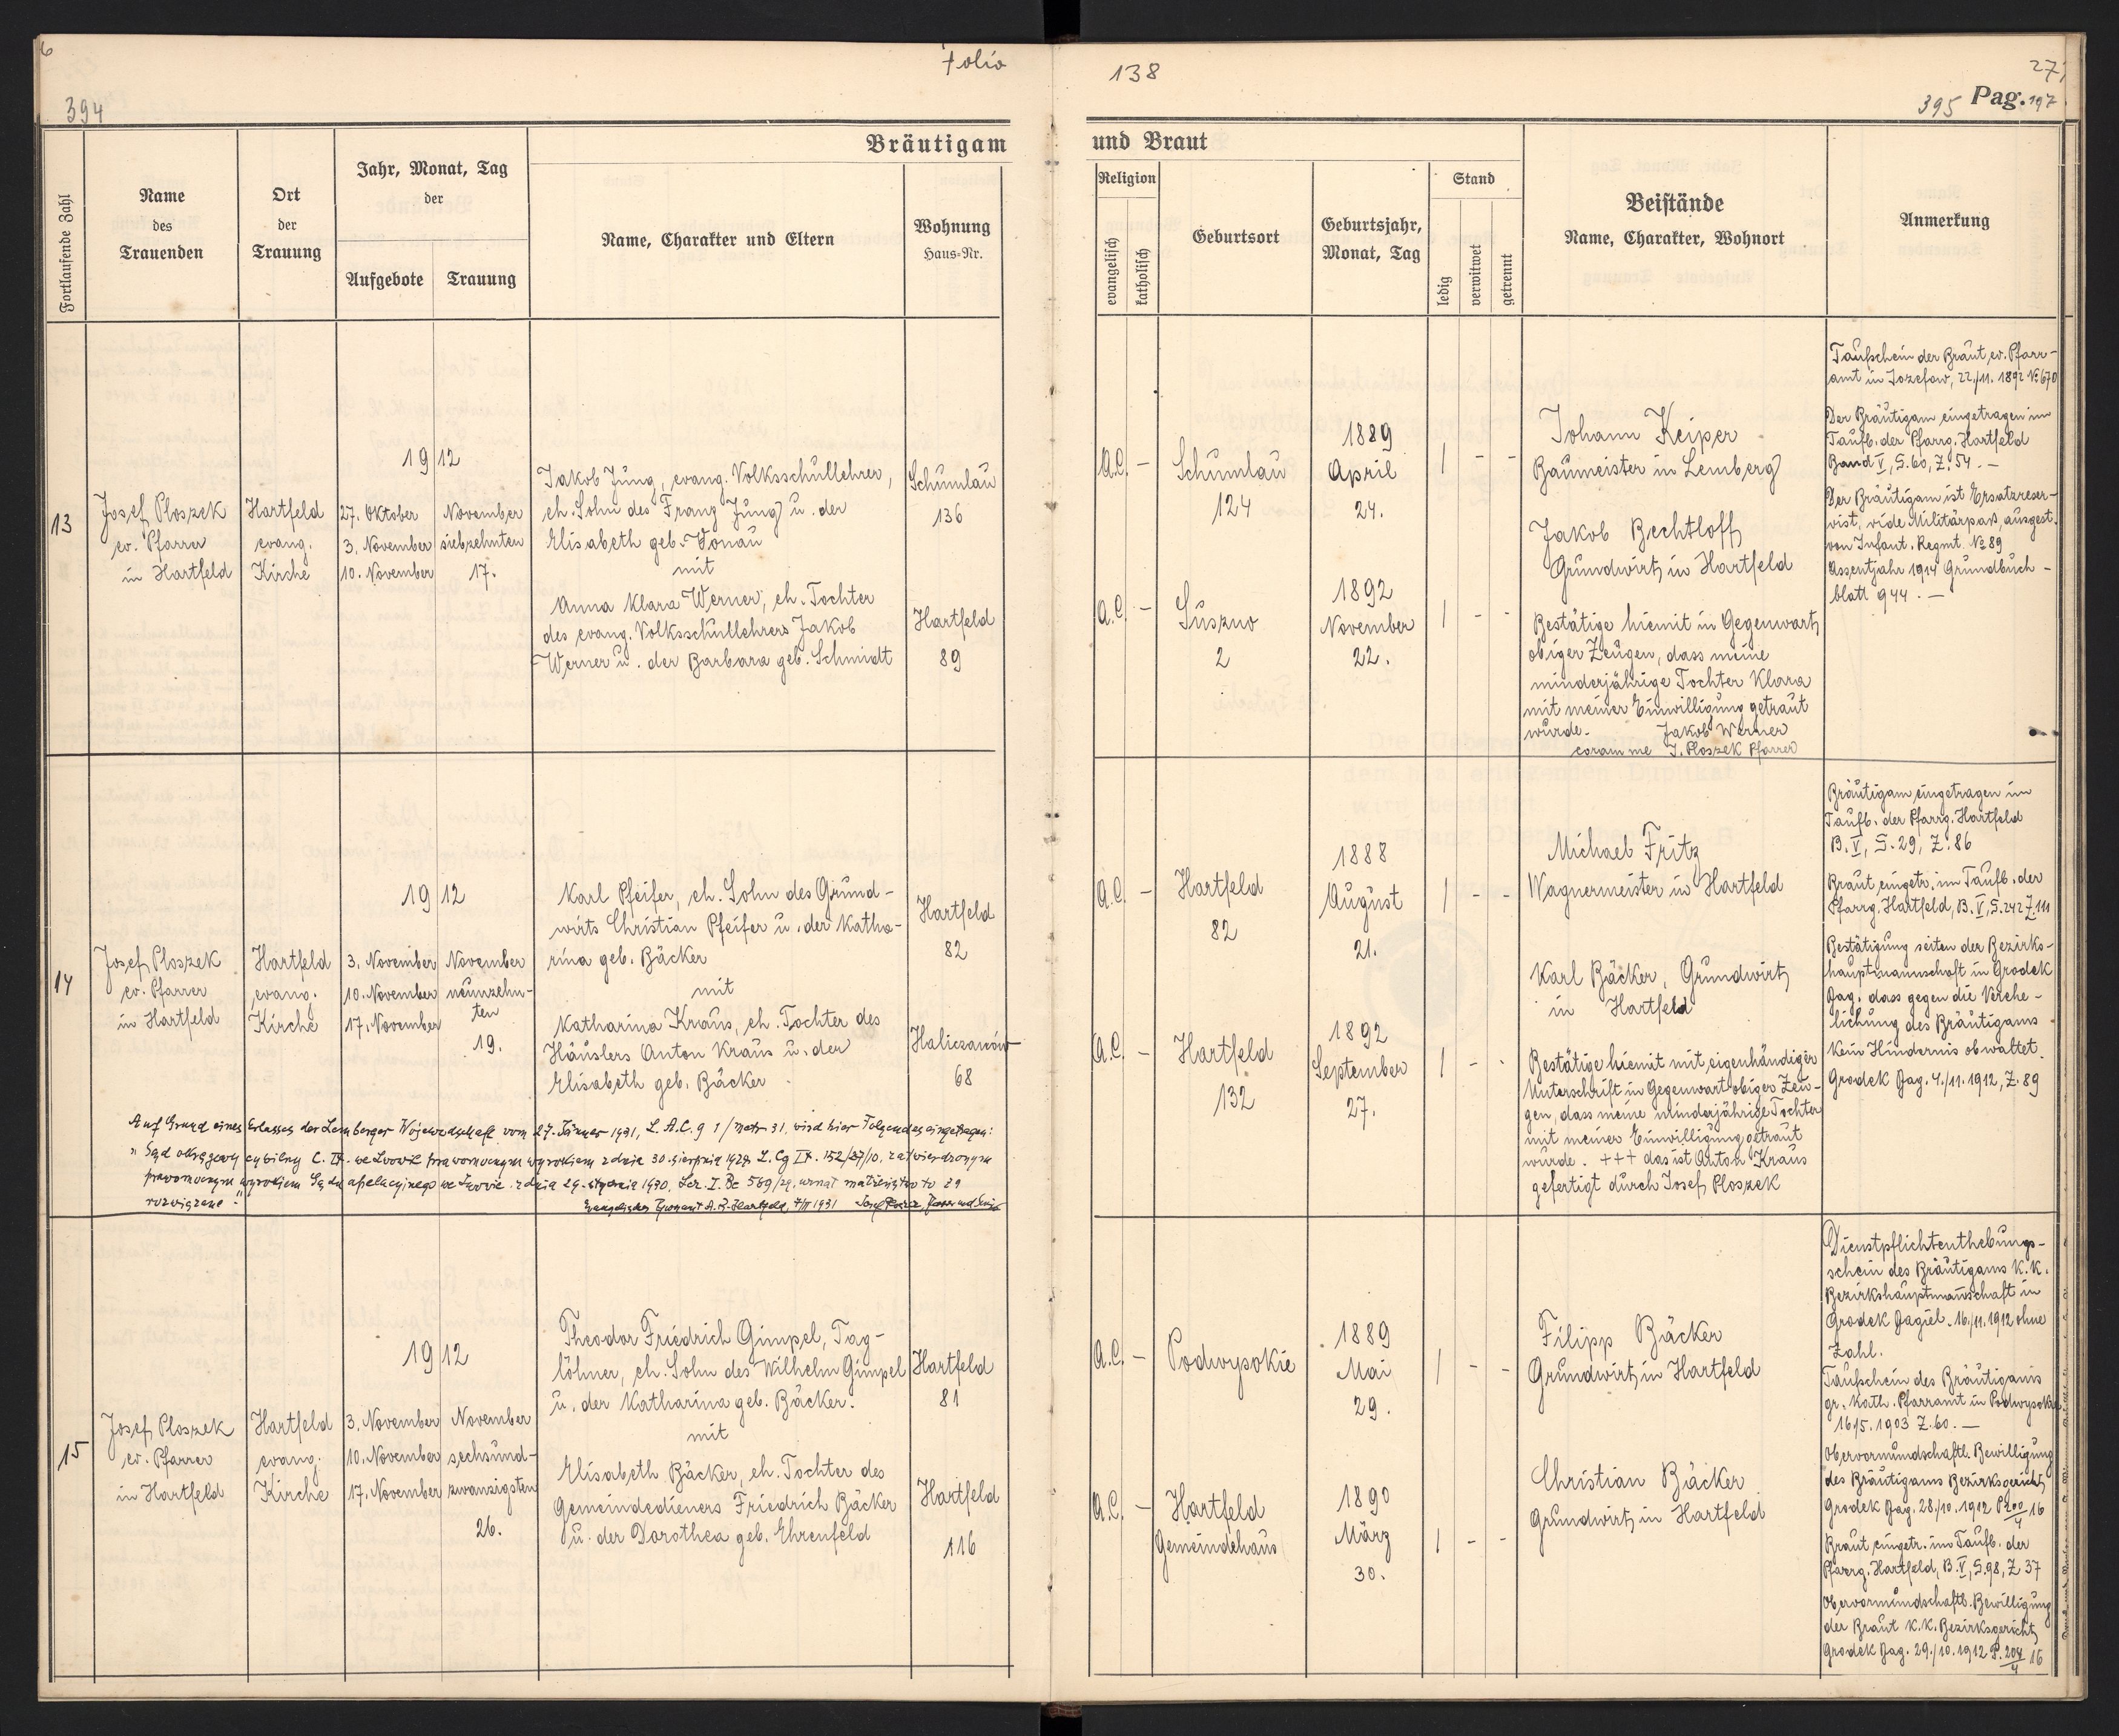 6
Folio
394
138
27
395 Pag. 197.
Bräutigam
und Braut
Fortlaufende Zahl
Name
des
Trauenden
Ort
der
Trauung
Jahr, Monat, Tag
der
Aufgebote
Trauung
Name, Charakter und Eltern
Wohnung
Haus-Nr.
Religion
evangelisch
katholisch
Geburtsort
Geburtsjahr,
Monat, Tag
Stand
ledig
verwitwet
getrennt
Beistände
Name, Charakter, Wohnort
Anmerkung
13
Josef Ploszek
ev. Pfarrer
in Hartfeld
Hartfeld
evang.
Kirche
1912
27. Oktober
3. November
10. November
November
siebzehnten
17.
Jakob Jung, evang. Volksschullehrer,
eh. Sohn des Franz Jung u. der
Elisabeth geb. Donau
mit
Anna Klara Werner, eh. Tochter
des evang. Volksschullehrers Jakob
Werner u. der Barbara geb. Schmidt
Schumlau
136
Hartfeld
89
A.C. –
Schumlau
124
1889
April
24.
A.C. –
Suszno
2
1892
November
22.
Johann Keiper
Baumeister in Lemberg
Jakob Bechtloff
Grundwirt in Hartfeld
Bestätige hiemit in Gegenwart
obiger Zeugen, dass meine
minderjährige Tochter Klara
mit meiner Einwilligung getraut
wurde. Jakob Werner
coram me J. Ploszek Pfarrer
Taufschein der Braut ev. Pfarr-
amt in Jozefow, 22./11. 1892 № 670
Der Bräutigam eingetragen im
Taufb. der Pfarrg. Hartfeld
Band V, S. 60, Z. 54. –
Der Bräutigam ist Ersatzreser-
vist, vide Militärpaß, ausgest.
von Infant. Regmt. № 89
Assentjahr 1914 Grundbuch-
blatt 944. –
14
Josef Ploszek
ev. Pfarrer
in Hartfeld
Hartfeld
evang.
Kirche
1912
3. November
10. November
17. November
November
neunzehn-
ten
19.
Karl Pfeifer, eh. Sohn des Grund-
wirts Christian Pfeifer u. der Katha-
rina geb. Bäcker
mit
Katharina Kraus, eh. Tochter des
Häuslers Anton Kraus u. der
Elisabeth geb. Bäcker
Hartfeld
82
Haliczanów
68
Auf Grund eines Erlasses der Lemberger Wojewodschaft vom 27. Jänner 1931, L. A.C. 9 1/Metr 31, wird hier Folgendes eingetragen:
"Sąd okręgowy cywilny C. IX. we Lwowie prawomocnym wyrokiem z dnia 30. sierpnia 1929 L. Cg IX. 152/27/10, zatwierdzonym
prawomocnym wyrokiem Sądu apelacyjnego we Lwowie z dnia 29. stycznia 1930, Lcr. I. Bc 569/29, uznał małżeństwo to za
rozwiązane."
Evangelisches Pfarramt A.B. Hartfeld, 7/II 1931 Josef Ploszek, Pfarrer und Senior
A.C. –
Hartfeld
82
1888
August
21.
A.C. –
Hartfeld
132
1892
September
27.
Michael Fritz
Wagnermeister in Hartfeld
Karl Bäcker, Grundwirt
in Hartfeld
Bestätige hiemit mit eigenhändiger
Unterschrift in Gegenwart obiger Zeu-
gen, dass meine minderjährige Tochter
mit meiner Einwilligung getraut
wurde. +++ das ist Anton Kraus
gefertigt durch Josef Ploszek
Bräutigam eingetragen im
Taufb. der Pfarrg. Hartfeld
B. V, S. 29, Z. 86
Braut eingetr. im Taufb. der
Pfarrg. Hartfeld, B. V, S. 242 Z. 111
Bestätigung seiten der Bezirks-
hauptmannschaft in Grodek
Jag. dass gegen die Verehe-
lichung des Bräutigams
kein Hindernis obwaltet.
Grodek Jag. 4./11. 1912, Z. 89
15
Josef Ploszek
ev. Pfarrer
in Hartfeld
Hartfeld
evang.
Kirche
1912
3. November
10. November
17. November
November
sechsund-
zwanzigsten
26.
Theodor Friedrich Gimpel, Tag-
löhner, eh. Sohn des Wilhelm Gimpel
u. der Katharina geb. Bäcker.
mit
Elisabeth Bäcker, eh. Tochter des
Gemeindedieners Friedrich Bäcker
u. der Dorothea geb. Ehrenfeld
Hartfeld
81
Hartfeld
116
A.C. –
Podwysokie
1889
Mai
29.
A.C. –
Hartfeld
Gemeindehaus
1890
März
30.
Filipp Bäcker
Grundwirt in Hartfeld
Christian Bäcker
Grundwirt in Hartfeld
Dienstpflichtenthebungs-
schein des Bräutigams K.K.
Bezirkshauptmannschaft in
Grodek Jagiel. 16./11. 1912 ohne
Zahl.
Taufschein des Bräutigams
gr. kath. Pfarramt in Podwysokie
16/5. 1903 Z. 60. –
Obervormundschaftl. Bewilligung
des Bräutigams Bezirksgericht
Grodek Jag. 28./10. 1912 P 200/4 16
Braut eingetr. im Taufb. der
Pfarrg. Hartfeld, B. V, S. 98, Z 37
Obervormundschaftl. Bewilligung
der Braut K.K. Bezirksgericht
Grodek Jag. 29./10. 1912 P. 204/4 16